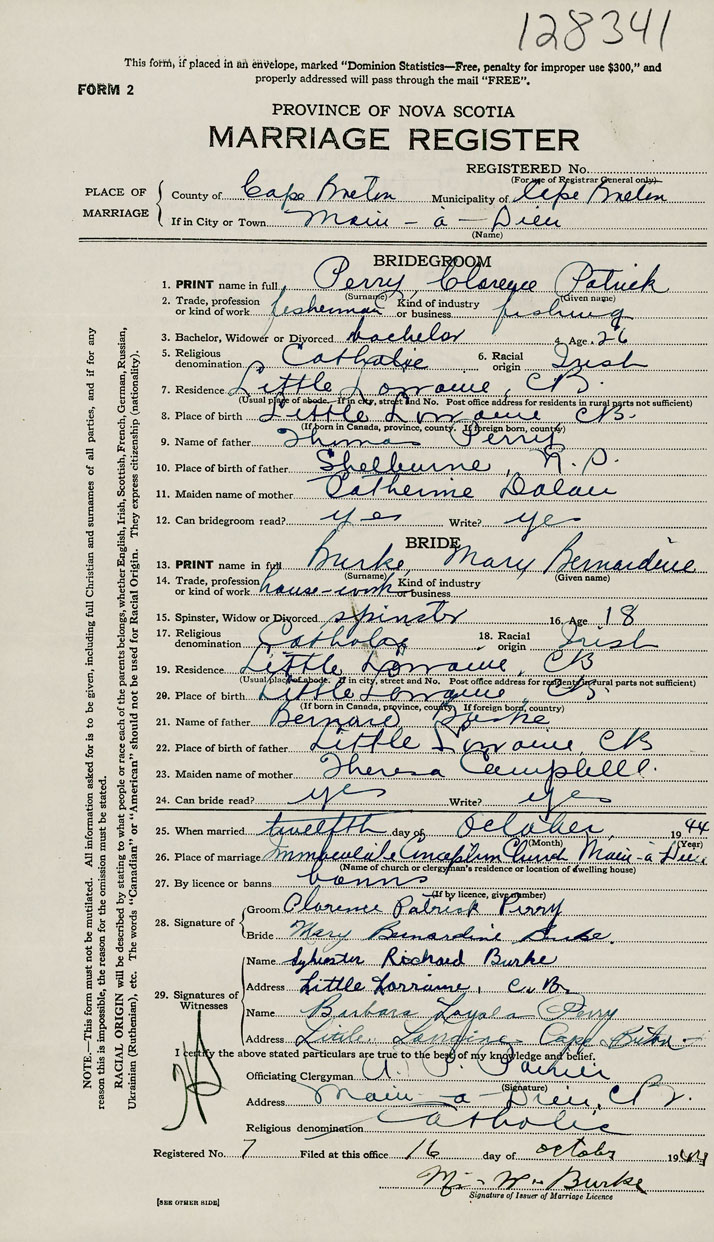 128341
This form, if placed in an envelope, marked "Dominion Statistics—Free, penalty for improper use $300," and
properly addressed will pass through the mail "FREE".
FORM 2
PROVINCE OF NOVA SCOTIA
MARRIAGE REGISTER
REGISTERED No.
(For use of Registrar General only)
PLACE OF MARRIAGE
County of Cape Breton Municipality of Cape Breton
If in City or Town Main-à-Dieu
(Name)
BRIDEGROOM
1. PRINT name in full Perry Clarence Patrick
(Surname) (Given name)
2. Trade, profession or kind of work fisherman Kind of industry or business fishing
3. Bachelor, Widower or Divorced bachelor 4. Age 26
5. Religious denomination Catholic 6. Racial origin Irish
7. Residence Little Lorraine, CB.
(Usual place of abode. If in city, street and No. Post office address for residents in rural parts not sufficient)
8. Place of birth Little Lorraine CB.
(If born in Canada, province, county. If foreign born, country)
9. Name of father Thomas Perry
10. Place of birth of father Shelburne, N.S.
11. Maiden name of mother Catherine
12. Can bridegroom read? yes Write? yes
BRIDE
13. PRINT name in full Burke Mary Bernardine
(Surname) (Given name)
14. Trade, profession or kind of work house-work Kind of industry or business
15. Spinster, Widow or Divorced spinster 16. Age 18
17. Religious denomination Catholic 18. Racial origin Irish
19. Residence Little Lorraine, CB
(Usual place of abode. If in city, street and No. Post office address for residents in rural parts not sufficient)
20. Place of birth Little Lorraine, CB.
(If born in Canada, province, county. If foreign born, country)
21. Name of father Bernard Burke
22. Place of birth of father Little Lorraine, CB
23. Maiden name of mother Theresa Campbell.
24. Can bride read? yes Write? yes
25. When married twelfth day of October, 1944
(Month) (Year)
26. Place of marriage Immaculate Conception Church Main-à-Dieu
(Name of church or clergyman's residence or location of dwelling house)
27. By licence or banns banns
(If by licence, give number)
28. Signature of
Groom Clarence Patrick Perry
Bride Mary Bernardine Burke.
29. Signatures of Witnesses
Name Sylvester Richard Burke
Address Little Lorraine, C.B.
Name Barbara Loyola Perry
Address Little Lorraine Cape Breton
I certify the above stated particulars are true to the best of my knowledge and belief.
Officiating Clergyman
(Signature)
Address Main-a-Dieu, C.B.
Religious denomination Catholic
Registered No. 7 Filed at this office 16 day of October 1944
Burke
Signature of Issuer of Marriage Licence
[SEE OTHER SIDE]
NOTE.—This form must not be mutilated. All information asked for is to be given, including full Christian and surnames of all parties, and if for any
reason this is impossible, the reason for the omission must be stated.
RACIAL ORIGIN will be described by stating to what people or race each of the parents belongs, whether English, Irish, Scottish, French, German, Russian,
Ukrainian (Ruthenian), etc. The words "Canadian" or "American" should not be used for Racial Origin. They express citizenship (nationality).